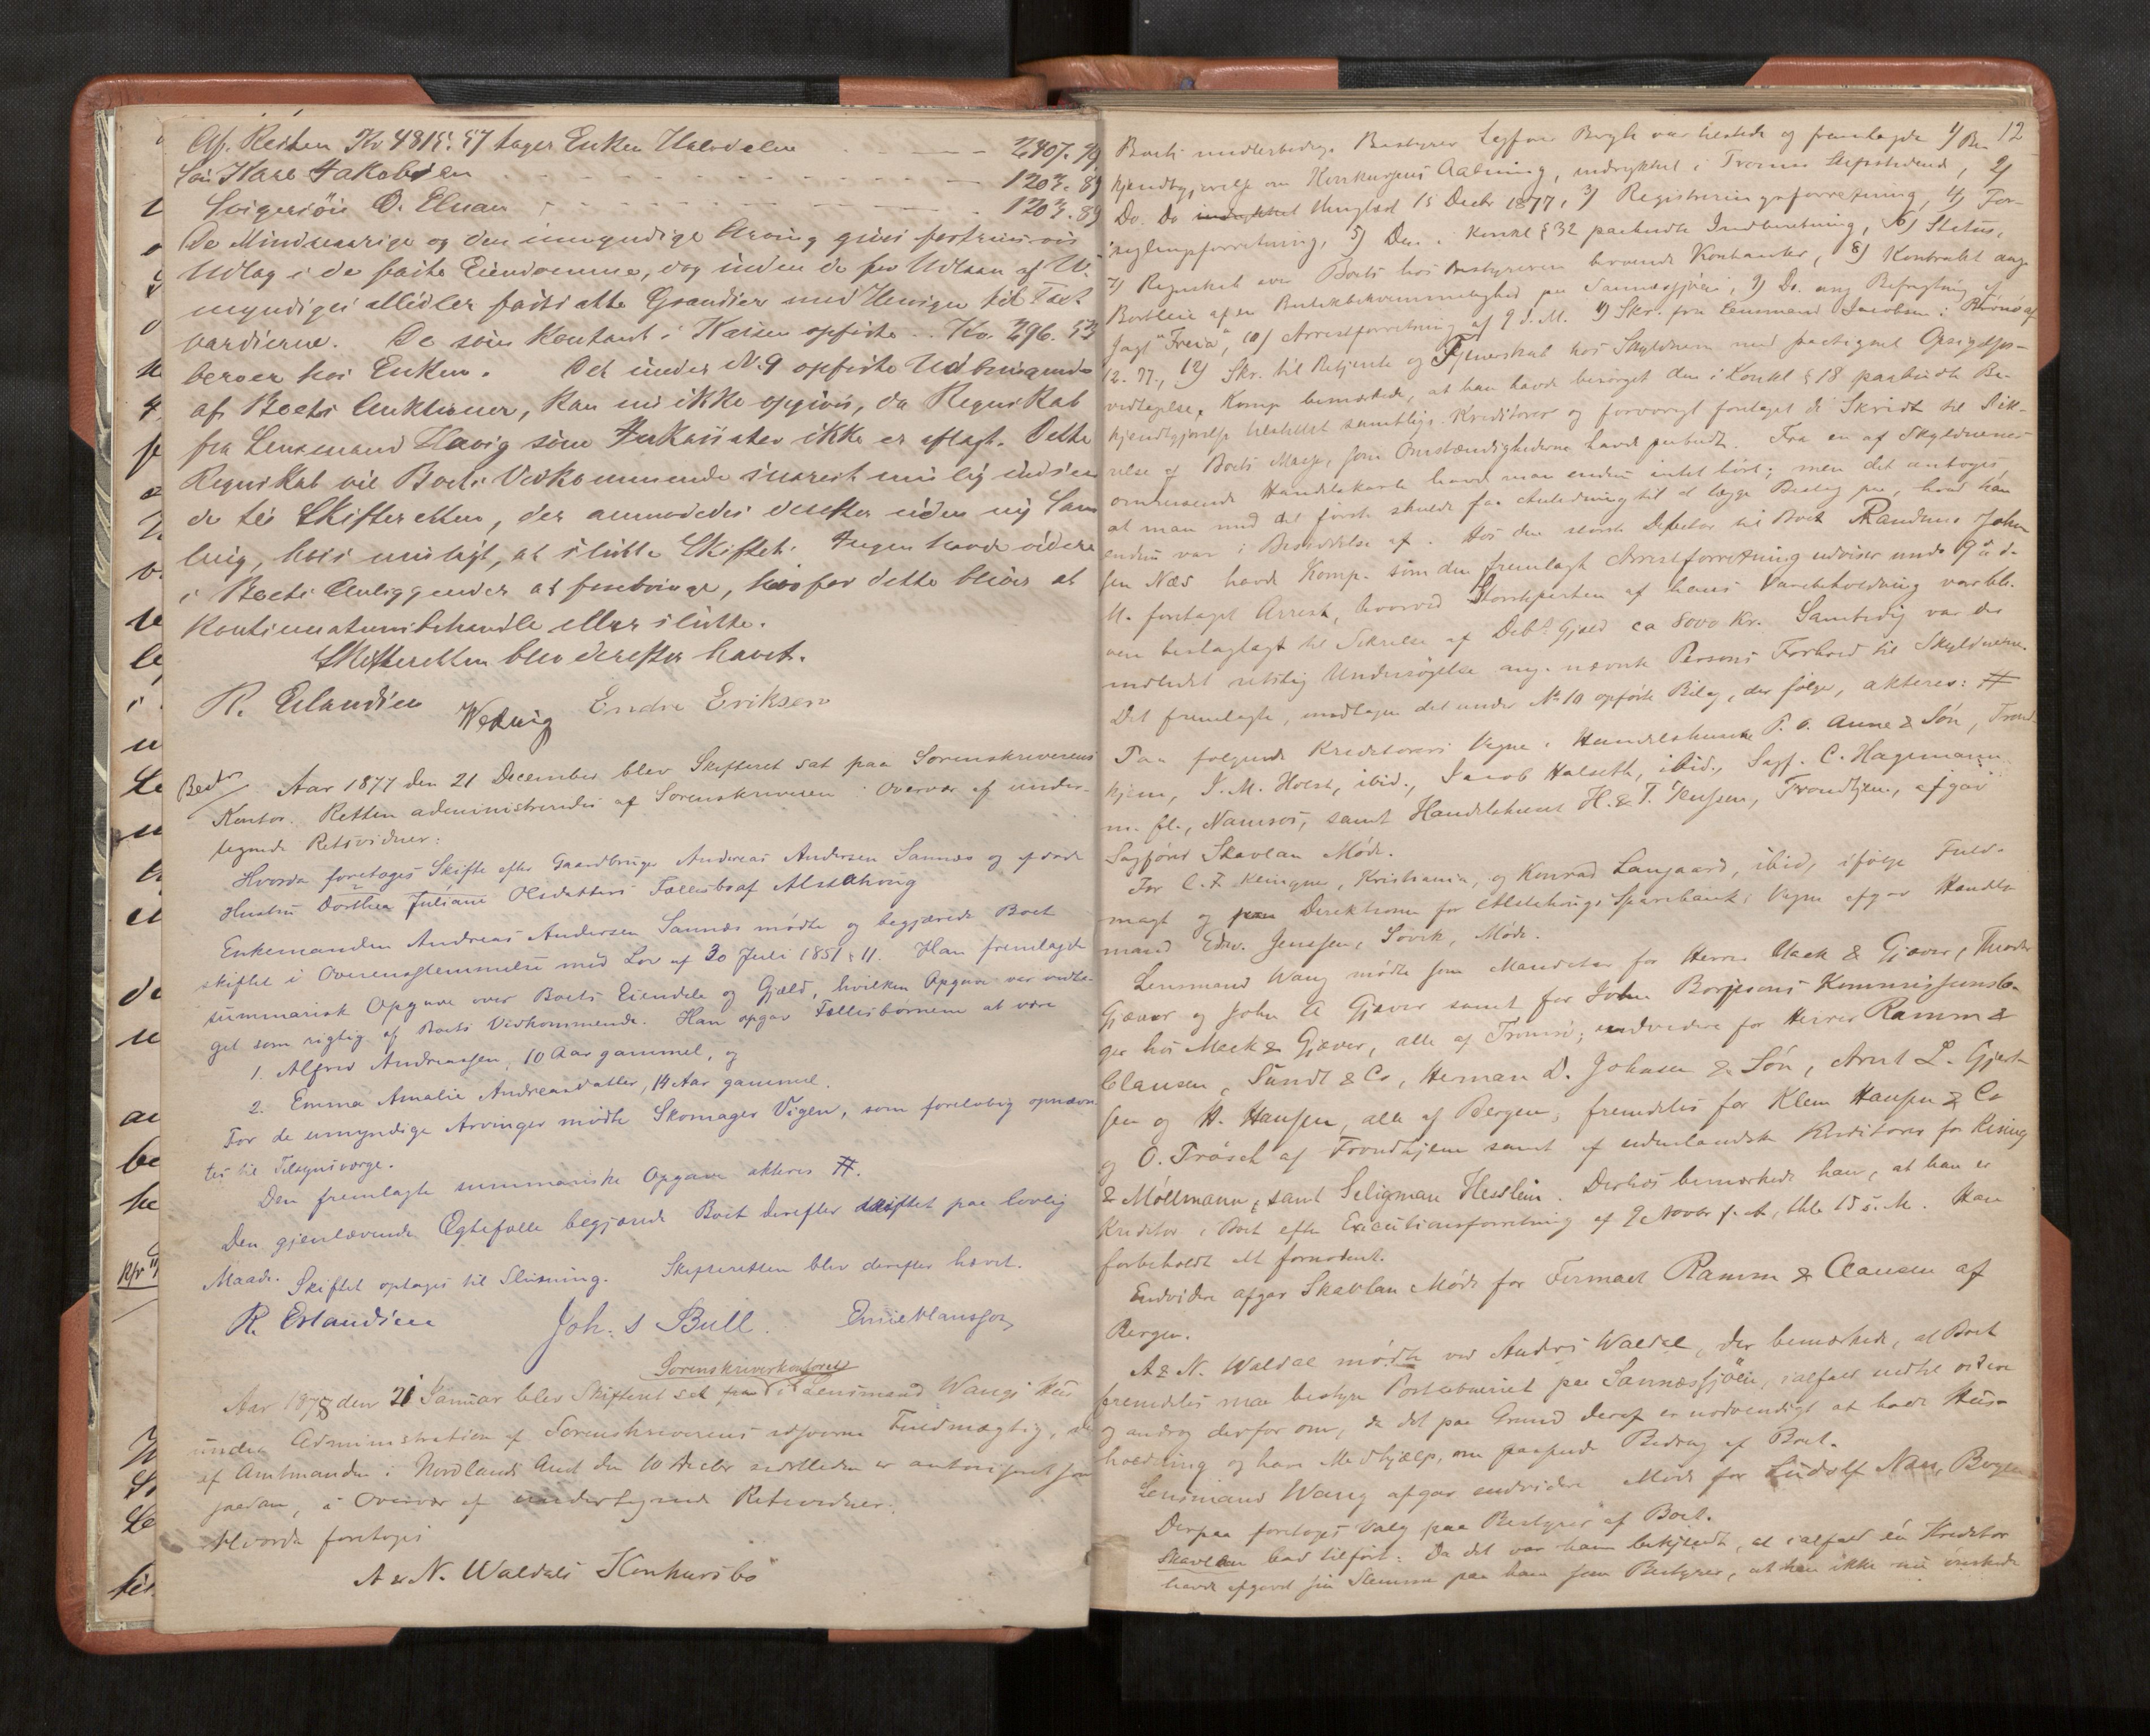 Af Resten Kr 4815.57 tager Enken Halvdelen 2407.79
Søn Hans Jakobsen 1203.89
Svigersøn O. Elnan 1203.89
De Mindreaarige og den umyndige Arving gives fortrinsvis
Udlæg i de faste Eiendomme, dog inden de for Udlaan af U-
myndiges Midler fastsatte Grændser med Hensyn til Taxt
værdierne. De som Kontant i Kassen opførte Kr. 296.53
beroer hos Enken. Det under N. 9 opførte Udbringende
af Boets Auktioner, kan nu ikke opgives, da Regnskab
fra Lensmand Havig som Inkassator ikke er aflagt. Dette
Regnskab vil Boets Vedkommende snarest mulig indsen
de til Skifteretten, der anmodedes derefter uden ny Sam
ling, hvis muligt, at slutte Skiftet. Ingen havde videre
i Boets Anliggender at frembringe, hvorfor dette blives at
Kontinuationsbehandle eller slutte.
Skifteretten blev derefter hævet.
R. Erlandsen Wedvig Endre Eriksen
Bedr Aar 1877 den 21 December blev Skifteret sat paa Sorenskriverens
Kontor. Retten administreredes af Sorenskriveren i Overvær af under-
tegnede Retsvidner:
Hvorda foretoges Skifte efter Gaardbruger Andreas Andersen Sannæs og afdøde
Hustru Dorthea Juliane Olsdatters Fællesbo af Alstahoug
Enkemanden Andreas Andersen Sannæs mødte og begjærede Boet
skiftet i Overensstemmelse med Lov af 30 Juli 1851 § 11. Han fremlagde
summarisk Opgave over Boets Eiendele og Gjæld, hvilken Opgave var vedta-
get som rigtig af Boets Vedkommende. Han opgav Fællesbørnene at være
1. Alfred Andreassen, 10 Aar gammel, og
2. Emma Amalie Andreasdatter, 14 Aar gammel.
For de umyndige Arvinger mødte Skomager Vigen, som foreløbig opnævn
tes til Tilsynsværge.
Den fremlagte summariske Opgave akteres #.
Den gjenlevende Ægtefælle begjærede Boet derefter skiftet paa lovlig
Maade. Skiftet optages til Slutning. Skifteretten blev derefter hævet.
R. Erlandsen Joh. S Bull.
Sorenskriverkontoret
Aar 1878 den 21 Januar blev Skifteret sat i Lensmand Wangs Hus
under Administration af Sorenskriverens edsvorne Fuldmægtig, der
af Amtmanden i Nordlands Amt den 10 Decbr sidstleden er autoriseret som
saadan, i Overvær af undertegnede Retsvidner.
Hvorda foretoges
A & N. Waldals Konkursbo
12
Boets midlertidige Bestyrer Sagfører Bergh var tilstede og fremlagde 1) Be-
kjendtgjørelse om Konkursens Aabning, indrykket i Tromsø Stiftstidende, 2)
Do. Do Morgbl 15 Decbr 1877, 3) Registreringsforretning, 4) For-
seglingsforretning, 5) Den i Konkl § 32 paabudte Indberetning, 6) Status,
7) Regnskab over Boets hos Bestyreren beroende Kontanter, 8) Kontrakt ang.
Bortleie af en Butikbekvemmelighed paa Sannessjøen, 9) Do. ang Befragtning af
Jagt "Freia", 10) Arrestforretning af 9 d. M. 11) Skr. fra Lensmand Jacobsen i Brønø af
12. 77., 12) Skr. til Betjente og Tjenerskab hos Skyldneren med paategnet Opsigelses-
vedtagelse. Komp bemærkede, at han havde besørget den i Konkl § 18 paabudte Be-
kjendtgjørelse tilstillet samtlige Kreditorer og forøvrigt foretaget de Skridt til Sik-
relse af Boets Masse, som Omstændighederne havde paabudt. Fra en af Skyldnerens
omreisende Handelskarle havde man endnu intet hørt; men det antoges,
at man med det første skulde faa Anledning til at lægge Beslag paa, hvad han
endnu var i Besiddelse af. Hos den største Debitor til Boet Randine Johan
sen Næs havde Komp. som den fremlagte Arrestforretning udviser under 9 d.
M. foretaget Arrest, hvorved Størsteparten af hans Varebeholdning var bl.
ven beslaglagt til Sikrelse af Debs Gjæld ca 8000 Kr. Samtidig var der
indledet retslig Undersøgelse ang. nævnte Persons Forhold til Skyldneren.
Det fremlagte, undtagen det under No 10 opførte Bilag, der følger, akteres: #
Paa følgende Kreditorers Vegne: Handelshuset P. A. Aune & Søn, Trond-
hjem, J. M. Holst, ibid., Jacob Halseth, ibid., Sagf. C. Hagemann
m. fl., Namsos, samt Handelshuset H. & T. Jenssen, Trondhjem, afgav
Sagfører Skavlan Møde.
For C. F. Klingner, Kristiania, og Konrad Langaard, ibid, ifølge Fuld-
magt og Direktionen for Alstahougs Sparebanks Vegne afgav Handels-
mand Edw. Jenssen, Søvik, Møde.
Lensmand Wang mødte som Mandatar for Herrer Mack & Gjæver, Theodor
Gjæver og John A Gjæver samt for John Borjesons Kommissionslo-
ger hos Mack & Gjæver, alle af Tromsø; endvidere for Herrer Ramm &
Clausen, Sundt & Co, Herman D. Johnsen & Søn, Arnt L. Gjert-
sen og H. Hansen, alle af Bergen; fremdeles for Klem Hansen & Co
og O. Trøsch af Trondhjem samt af udenlandske Kreditorer for Rising
& Möllmann, samt Seligman Hesslein. Derhos bemærkede han, at han er
Kreditor i Boet efter Executionsforretning af 9 Novbr f. A, Thl. 15 s. M. Han
forbeholdt alt fornødent.
Endvidere afgav Skavlan Møde for Firmaet Ramm & Clausen af
Bergen.
A & N. Waldal mødte ved Anders Waldal, der bemærkede, at Boet
fremdeles maa bestyre Postaabneriet paa Sannessjøen, ialfald indtil videre
og androg derfor om, da det paa Grund deraf er nødvendigt at have Hus-
holdning og have Medhjælp, om passende Bidrag af Boet.
Lensmand Wang afgav endvidere Møde for Ludolf Næs, Bergen
Derpaa foretoges Valg paa Bestyrer af Boet.
Skavlan bad tilført: Da det var ham bekjendt, at ialfald én Kreditor
havde afgivet sin Stemme paa ham som Bestyrer, at han ikke nu ønskede